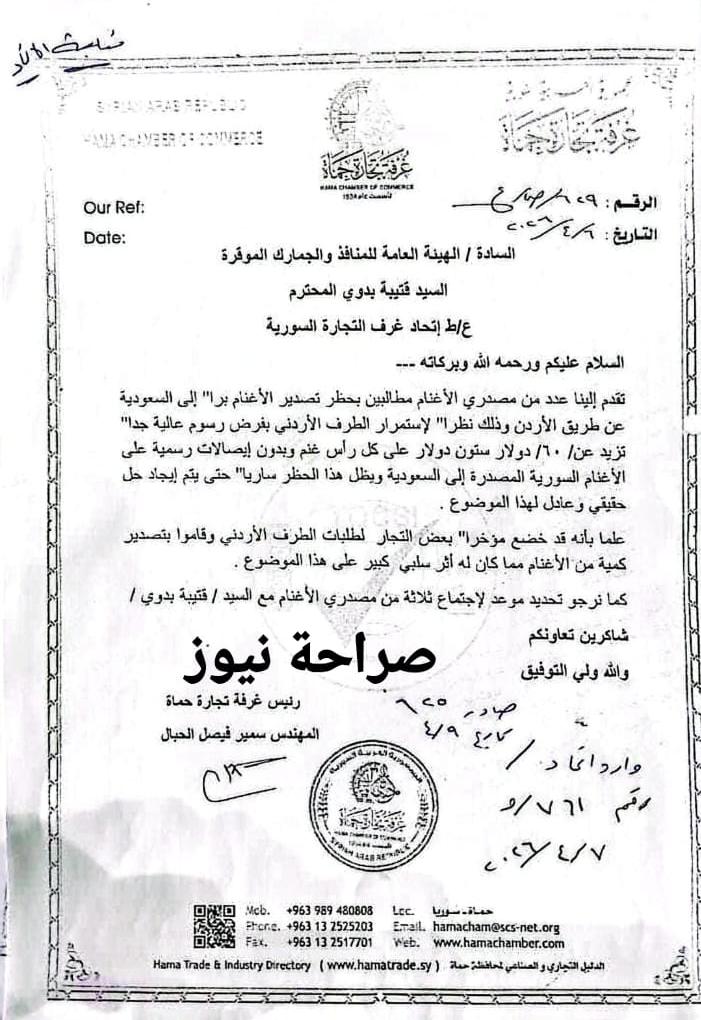 SYRIAN ARAB REPUBLIC
HAMA CHAMBER OF COMMERCE
غرفة تجارة حماة
غرفة تجارة حماة
HAMA CHAMBER OF COMMERCE
تأسست عام 1934
Our Ref:
الرقم :
Date:
التاريخ : ٢٠٢٦/٤/٦
السادة / الهيئة العامة للمنافذ والجمارك الموقرة
السيد قتيبة بدوي المحترم
ع/ط إتحاد غرف التجارة السورية
السلام عليكم ورحمه الله وبركاته ---
تقدم إلينا عدد من مصدري الأغنام مطالبين بحظر تصدير الأغنام برا" إلى السعودية
عن طريق الأردن وذلك نظرا" لإستمرار الطرف الأردني بفرض رسوم عالية جدا"
تزيد عن/ ٦٠/ دولار ستون دولار على كل رأس غنم وبدون إيصالات رسمية على
الأغنام السورية المصدرة إلى السعودية ويظل هذا الحظر ساريا" حتى يتم إيجاد حل
حقيقي وعادل لهذا الموضوع .
علما بأنه قد خضع مؤخرا" بعض التجار لطلبات الطرف الأردني وقاموا بتصدير
كمية من الأغنام مما كان له أثر سلبي كبير على هذا الموضوع .
كما نرجو تحديد موعد لإجتماع ثلاثة من مصدري الأغنام مع السيد / قتيبة بدوي /
شاكرين تعاونكم
صراحة نيوز
والله ولي التوفيق
رئيس غرفة تجارة حماة
المهندس سمير فيصل الحبال
صادر ٦٢٥
تاريخ ٤/٩
وارد اتحاد
رقم ٧٦١/و
٢٠٢٦/٤/٧
الجمهورية العربية السورية
غرفة تجارة حماة
HAMA CHAMBER OF COMMERCE
SYRIAN ARAB REPUBLIC
Mob. +963 989 480808
Loc. حماة-سوريا
Phone. +963 13 2525203
Email. hamacham@scs-net.org
Fax. +963 13 2517701
Web. www.hamachamber.com
Hama Trade & Industry Directory ( www.hamatrade.sy ) الدليل التجاري و الصناعي لمحافظة حماة